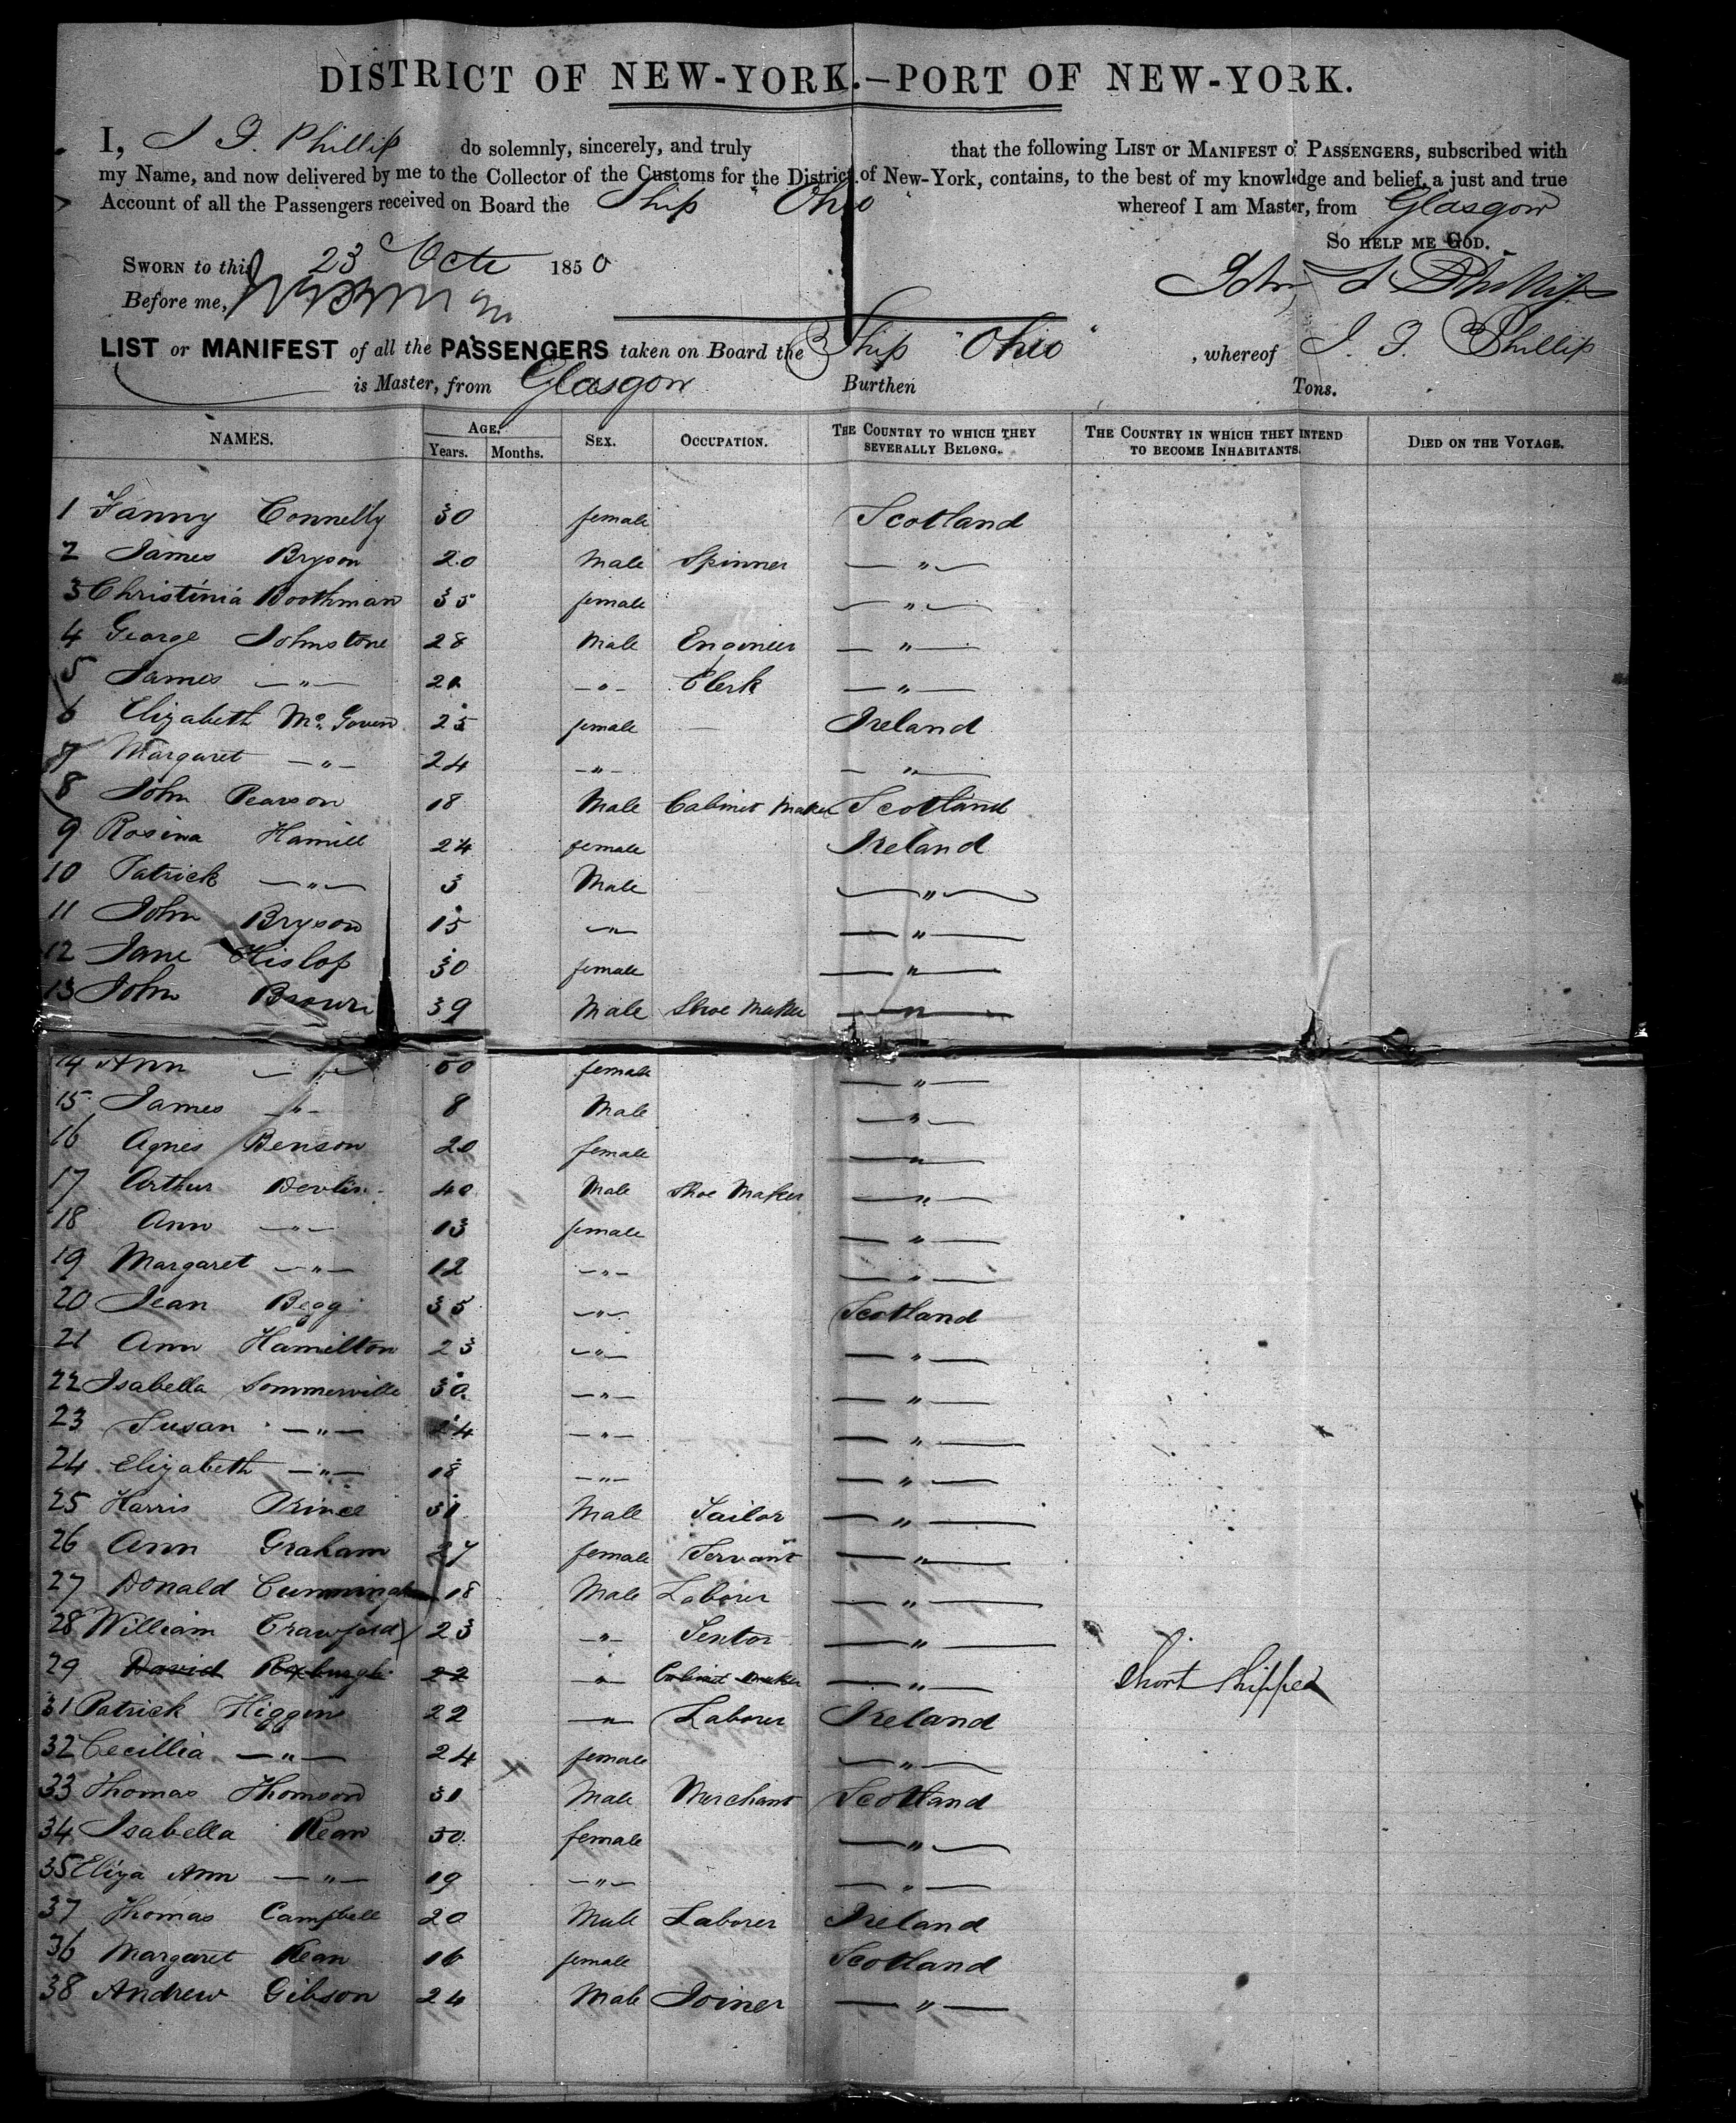 DISTRICT OF NEW-YORK.—PORT OF NEW-YORK.
I, J F. Phillip do solemnly, sincerely, and truly that the following LIST OR MANIFEST OF PASSENGERS, subscribed with
my Name, and now delivered by me to the Collector of the Customs for the District of New-York, contains, to the best of my knowledge and belief, a just and true
Account of all the Passengers received on Board the Ship "Ohio" whereof I am Master, from Glasgow
SO HELP ME GOD.
SWORN to this 23 Octr 1850
Before me,
John F Phillip
LIST or MANIFEST of all the PASSENGERS taken on Board the Ship "Ohio" , whereof J. F. Phillip
is Master, from Glasgow Burthen Tons.
NAMES. AGE. Years. Months. SEX. OCCUPATION. THE COUNTRY TO WHICH THEY SEVERALLY BELONG. THE COUNTRY IN WHICH THEY INTEND TO BECOME INHABITANTS. DIED ON THE VOYAGE.
1 Fanny Connelly 30 female Scotland
2 James Bryson 20 Male Spinner — " —
3 Christinia Boothman 35 female — " —
4 George Johnstone 28 Male Engineer — " —
5 James — " — — " — Clerk — " —
6 Elizabeth Mc Goven 25 female — Ireland
7 Margaret — " — 24 — " — — " —
8 John Pearson 18 Male Cabinet Maker Scotland
9 Rosina Hamill 24 female Ireland
10 Patrick — " — 3 Male — " —
11 John Bryson 15 — " — — " —
12 Jane Hislop 30 female — " —
13 John Brown 39 Male Shoe Maker — " —
14 Ann — " — 50 female — " —
15 James — " — 8 Male — " —
16 Agnes Benson 20 female — " —
17 Arthur Devlin 40 Male Shoe Maker — " —
18 Ann — " — 13 female — " —
19 Margaret — " — 12 — " — — " —
20 Jean Begg 35 — " — Scotland
21 Ann Hamilton 23 — " — — " —
22 Isabella Sommerville 30 — " — — " —
23 Susan — " — 24 — " — — " —
24 Elizabeth — " — 18 — " — — " —
25 Harris Prince 31 Male Tailor — " —
26 Ann Graham 27 female Servant — " —
27 Donald Cunningham 18 Male Laborer — " —
28 William Crawford 23 — " — — " —
29 David Roxburgh 22 — " — Cabinet Maker — " — Short Shipped
31 Patrick Higgins 22 — " — Laborer Ireland
32 Cecillia — " — 24 female — " —
33 Thomas Thomson 31 Male Merchant Scotland
34 Isabella Kean 50 female — " —
35 Eliza Ann — " — 19 — " — — " —
37 Thomas Campbell 20 Male Laborer Ireland
36 Margaret Kean 16 female Scotland
38 Andrew Gibson 24 Male Joiner — " —